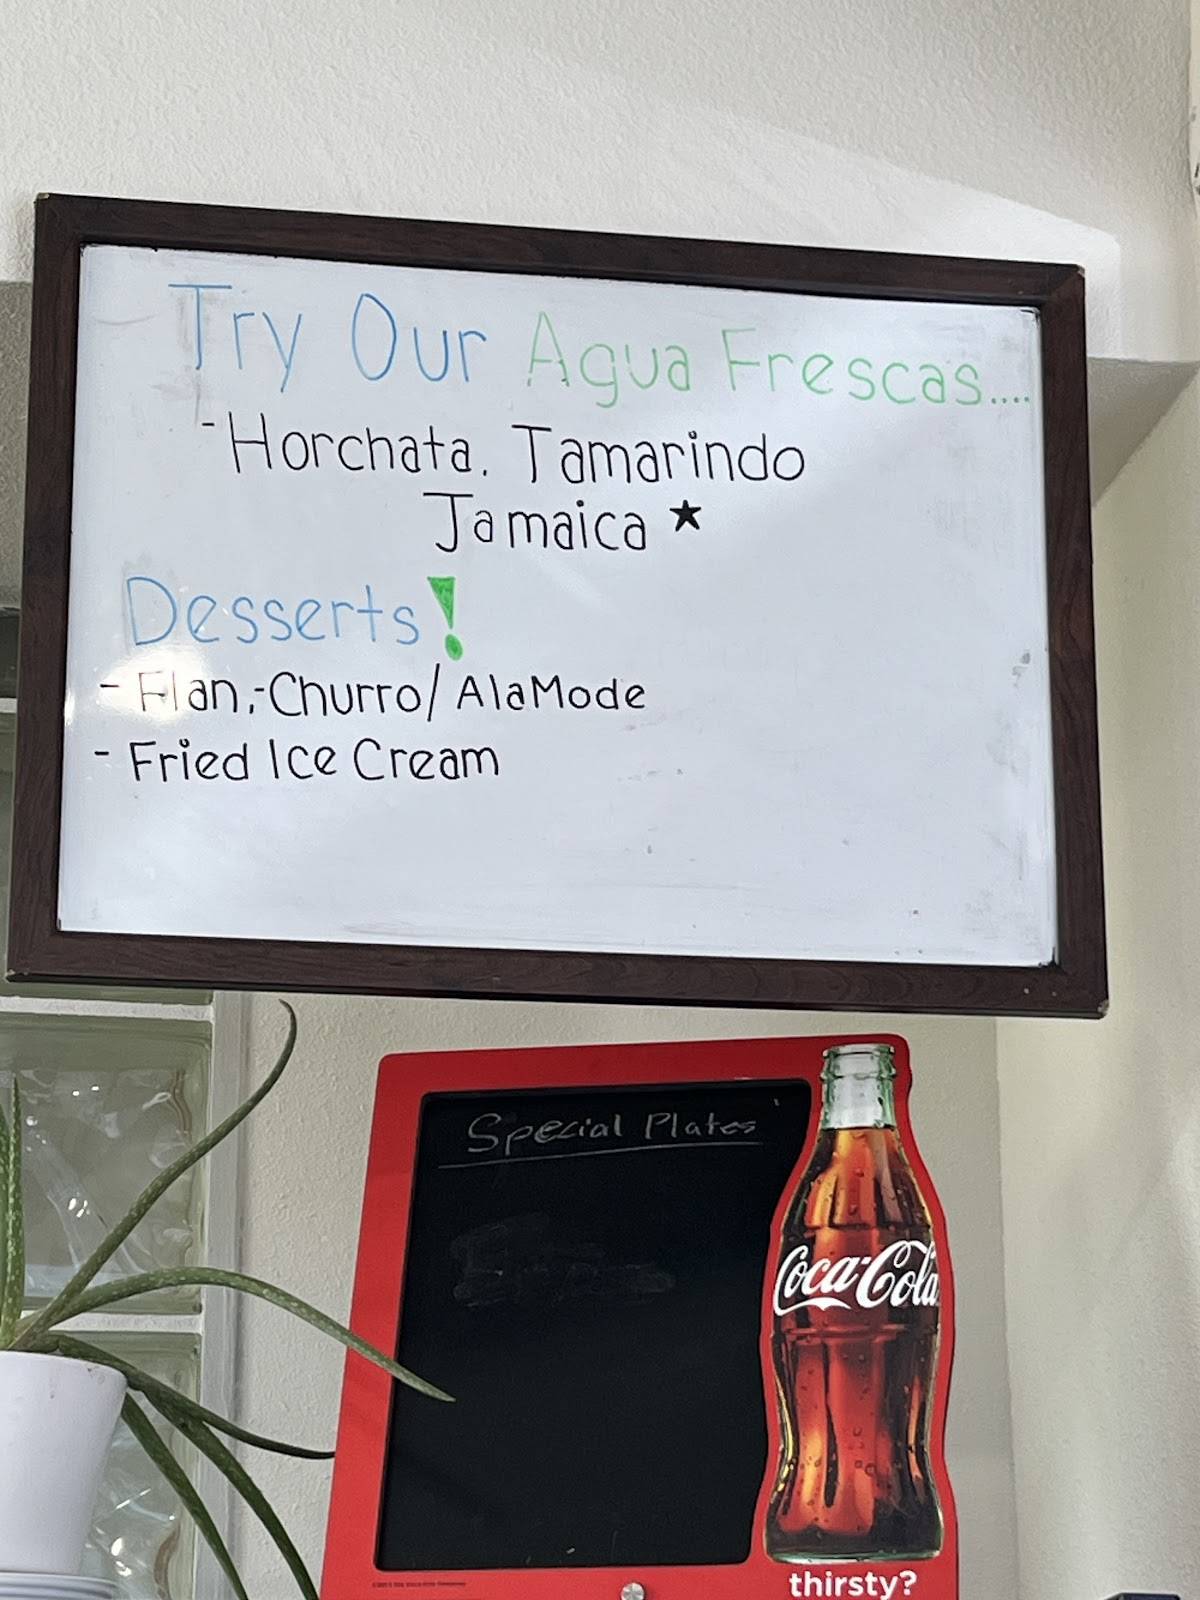 Try Our Agua Frescas....
- Horchata. Tamarindo
Jamaica ★
Desserts!
- Flan,-Churro/AlaMode
- Fried Ice Cream
Special Plates
Coca-Cola
thirsty?